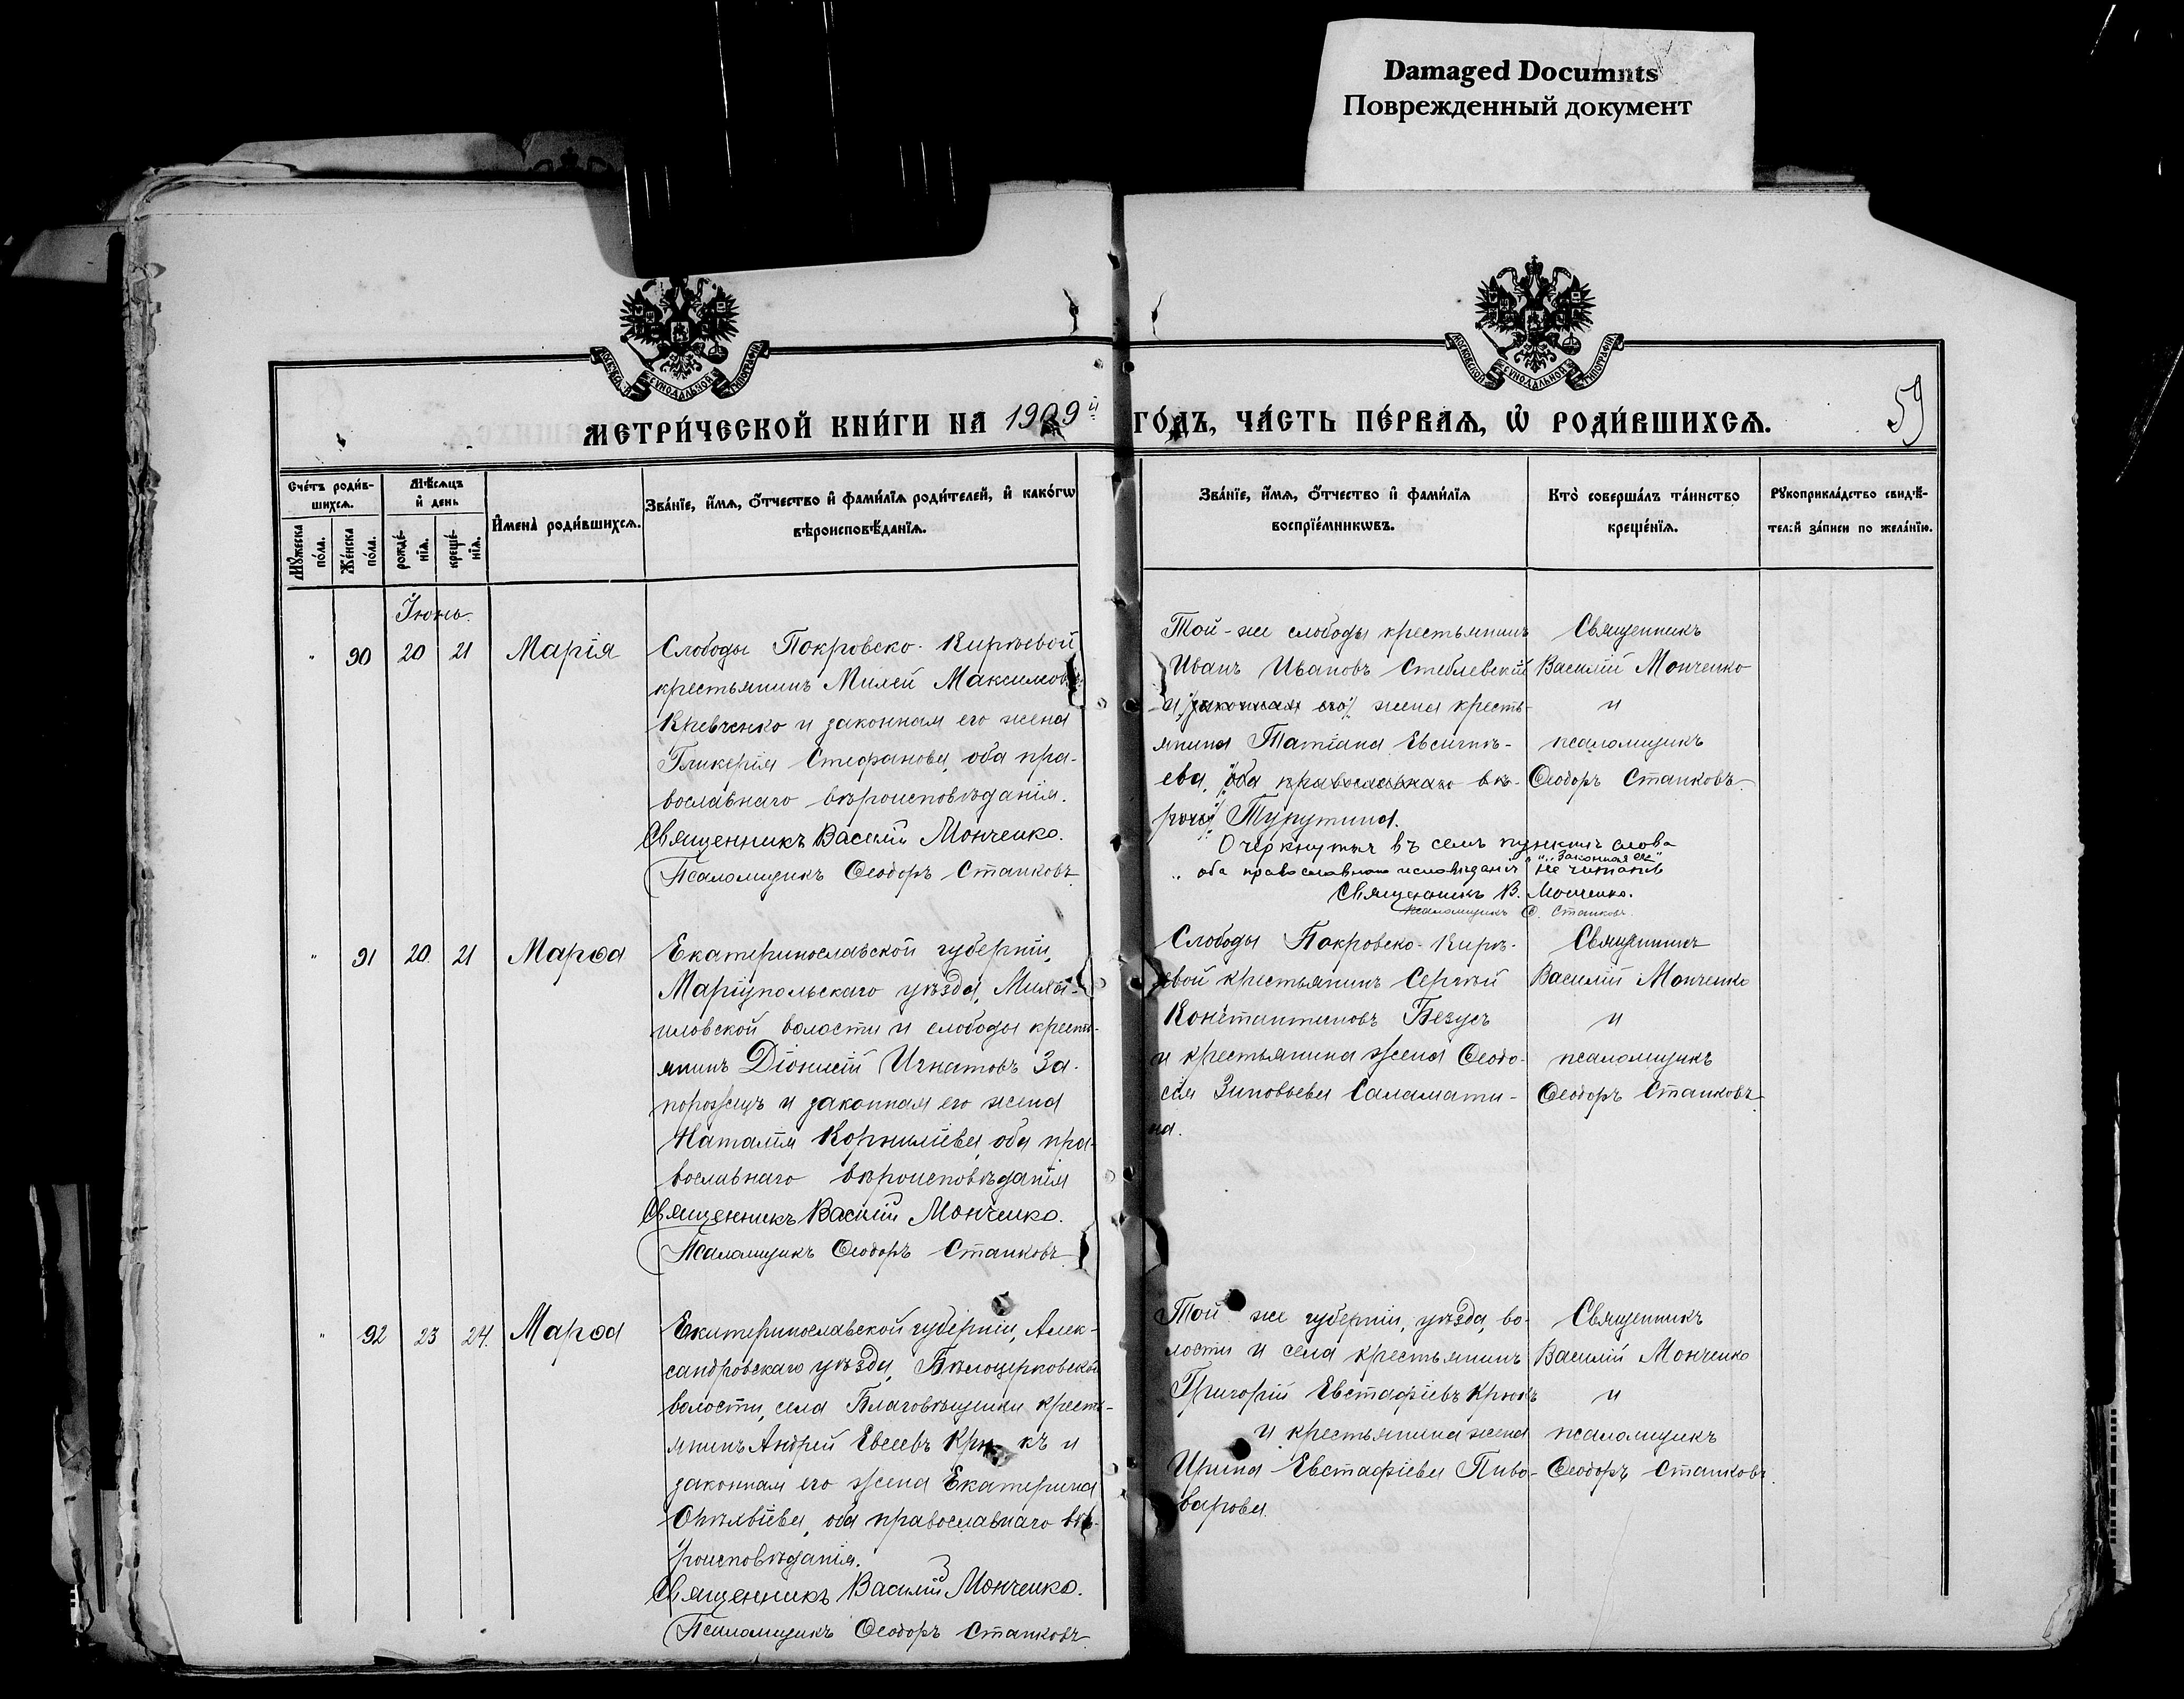 Damaged Documnts
Поврежденный документ
МОСКОВСКОЙ СѴНОДАЛЬНОЙ ТИПОГРАФІИ
59
МЕТРИ́ЧЕСКОЙ КНИ́ГИ НА 1909й ГО́ДЪ, ЧА́СТЬ ПЕ́РВАѦ, Ѡ҆ РОДИ́ВШИХСѦ.
Сче́тъ роди́в-
шихсѧ.
Мꙋ́жеска по́ла.
Же́нска по́ла.
Мѣ́сѧцъ
и҆ день
рожде́-
нїѧ.
креще́-
нїѧ.
И҆мена̀ роди́вшихсѧ.
Зва́нїе, и҆́мѧ, ѻ҆́тчество и҆ фами́лїѧ роди́телей, и҆ како́гѡ
вѣроисповѣ́данїѧ.
Зва́нїе, и҆́мѧ, ѻ҆́тчество и҆ фами́лїѧ
воспрїе́мникѡвъ.
Кто̀ соверша́лъ та́инство
креще́нїѧ.
Рꙋкоприкла́дство свидѣ́-
телей за́писи по жела́нїю.
Іюнь.
" 90 20 21 Марія
Слободы Покровско-Кирѣевой
крестьянинъ Милей Максимовъ
Кравченко и законная его жена
Гликерія Стефанова, оба пра-
вославнаго вѣроисповѣданія.
Священникъ Василій Монченко.
Псаломщикъ Ѳеодоръ Станковъ
Той-же слободы крестьянинъ
Иванъ Ивановъ Стеблевскій
и законная его жена кресть-
янина Татіана Евсигнѣ-
ева, оба православнаго вѣ-
Очеркнутыя въ семъ пунктѣ слова
"законная его"
"оба православнаго исповѣданія" не читать
Священникъ В. Монченко.
псаломщикъ Ѳ. Станковъ.
Священникъ
Василій Монченко
и
псаломщикъ
Ѳеодоръ Станковъ
" 91 20 21 Марѳа
Екатеринославской губерніи,
Маріупольскаго уѣзда, Миха-
иловской волости и слободы кресть-
янинъ Діонисій Игнатовъ За-
порожецъ и законная его жена
Наталія Корниліева, оба пра-
вославнаго вѣроисповѣданія
Священникъ Василій Монченко.
Псаломщикъ Ѳеодоръ Станковъ
Слободы Покровско-Кирѣ-
евой крестьянинъ Сергѣй
Константиновъ Безусъ
и крестьянина жена Ѳеодо-
сія Зиновьева Саламати-
на.
Священникъ
Василій Монченко
и
псаломщикъ
Ѳеодоръ Станковъ
" 92 23 24. Марѳа
Екатеринославской губерніи, Алек-
сандровскаго уѣзда, Бѣлоцерковской
волости, села Благовѣщенки кресть-
янинъ Андрей Евсеевъ къ и
законная его жена Екатерина
оба православнаго вѣ-
роисповѣданія.
Священникъ Василій Монченко.
Псаломщикъ Ѳеодоръ Станковъ
Той же губерніи, уѣзда, во-
лости и села крестьянинъ
Григорій Евстафіевъ Крюкъ
и крестьянина жена
Ирина Евстафіева Пиво-
варова.
Священникъ
Василій Монченко
и
псаломщикъ
Ѳеодоръ Станковъ.